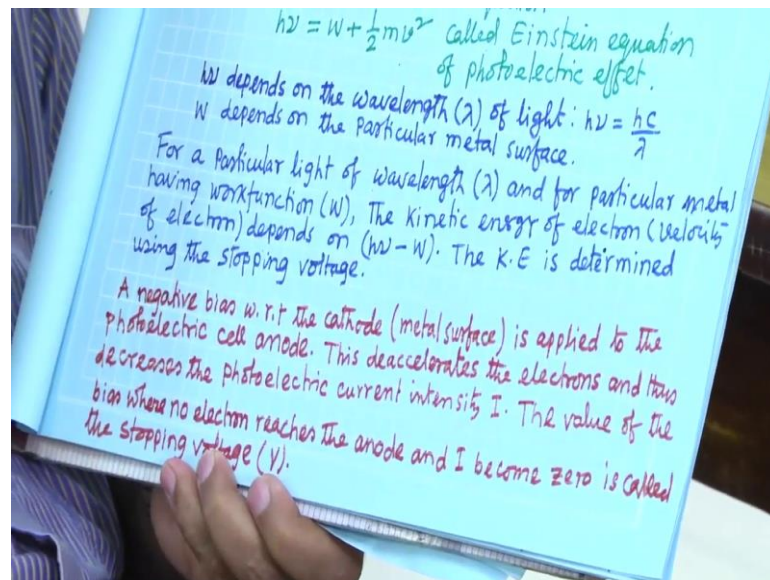 hν = W + ½mv² called Einstein equation
of photoelectric effet.
hν depends on the wavelength (λ) of light : hν = hc/λ
W depends on the Particular metal surface.
For a Particular light of wavelength (λ) and for particular metal
having workfunction (W), The Kinetic energy of electron (velocity
of electron) depends on (hν - W). The K.E is determined
using the stopping voltage.
A negative bias w.r.t the cathode (metal surface) is applied to the
photoelectric cell anode. This deaccelerates the electrons and thus
decreases the photoelectric current intensity I. The value of the
bias where no electron reaches the anode and I become zero is called
the stopping voltage (V).